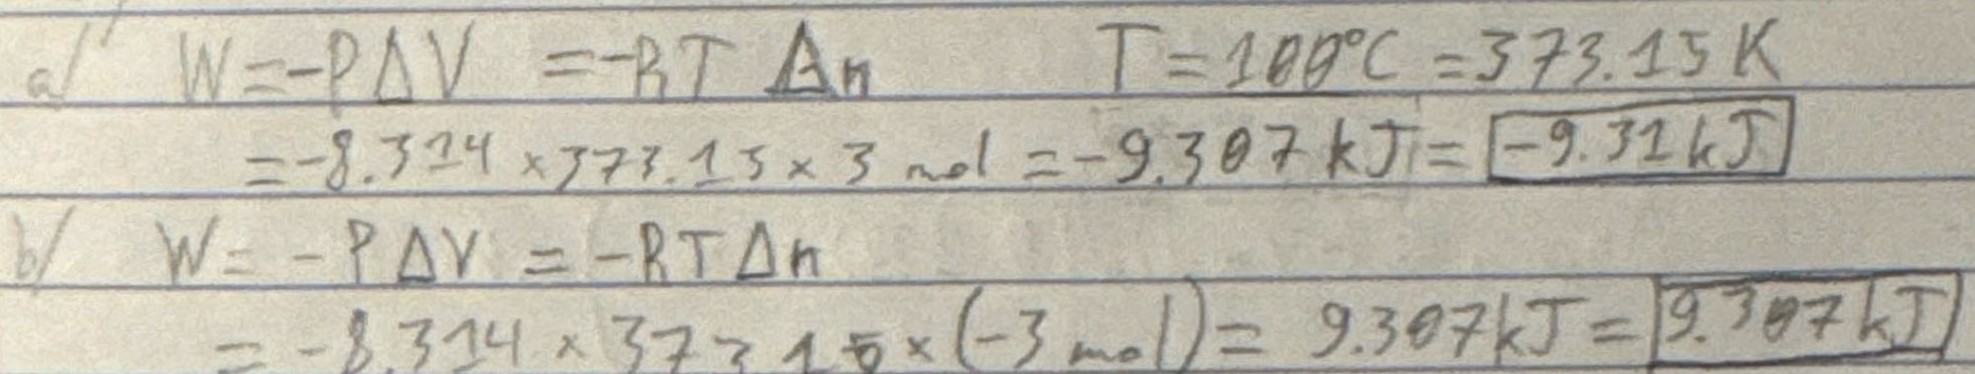 a/ W = -PΔV = -RT Δn T = 100°C = 373.15 K
= -8.314 × 373.15 × 3 mol = -9.307 kJ = -9.31 kJ
b/ W = - PΔV = -RTΔn
= -8.314 × 373.15 × (-3 mol) = 9.307 kJ = 9.307 kJ